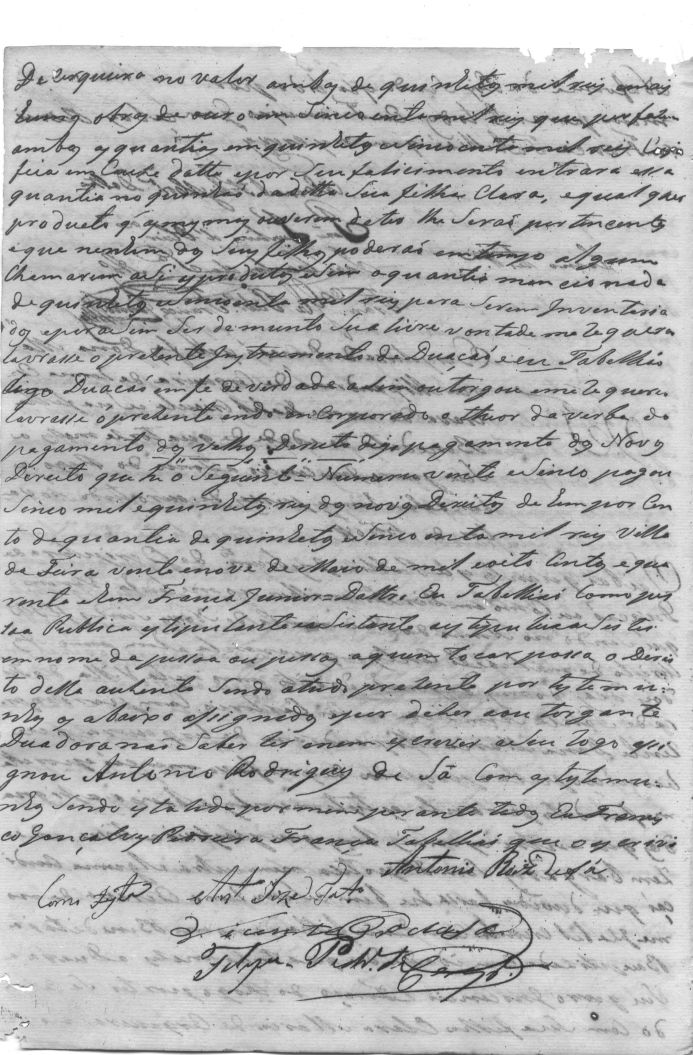 De serqueira no valor ambos de quinhentos mil reis e mais
humas obras de ouro em Sincoenta mil reis que perfazem
ambas as quantias em quinhentos e Sincoenta mil reis Cuja
feia em Conte datta e por seu falicimento entrara essa
quantia no quinhaõ da ditta Sua filha Clara, e qual quer
producto q. as mesmas ouverem de ter lhe Seraõ pertencentes
e que nenhum dos Seus filhos poderaõ em tempo algum
Chamarem a Si os produtos e Sim a quantia mencionada
de quinhentos e Sincoenta mil reis para Serem Inventaria
dos e para Sim Ser de munto Sua livre vontade me requeria
lavrasse o prezente Instrumento de Duacaõ e eu Tabelliaõ
digo Duacaõ em fe de verdade asim outorgou e me requereo
lavrasse o prezente endo em Corporado o theor da verba do
pagamento dos velhos Direito digo pagamento dos Novos
Direito que he o Seguinte = Numero vinte e Sinco pagou
Sinco mil e quinhentos reis dos novos Direitos de hum por Cen
to da quantia de quinhentos e Sincoenta mil reis Villa
da Feira vinte e nove de Maio de mil e oito Centos e qua
renta e hum Franca Junior = Datta. Eu Tabelliaõ Como pes
soa Publica estipulante e aSeitante estipulei e aSeitei
em nome da pessoa ou pessoas a quem tocar possa o Direi
to della auzente Sendo a tudo prezente por testemu:
nhas os abaixo assignados e por dizer a outorgante
Duadora naõ Saber ler e nem escrever a Seu rogo asi
gnou Antonio Rodrigues de Sá Com as testemu:
nhas Sendo esta lida por mim perante todos Eu Francis
co Gonçalves Pedreira França Tabelliaõ que o escrivi
Antonio Roiz de Sá
Como testa Ant. Joze
Felipe